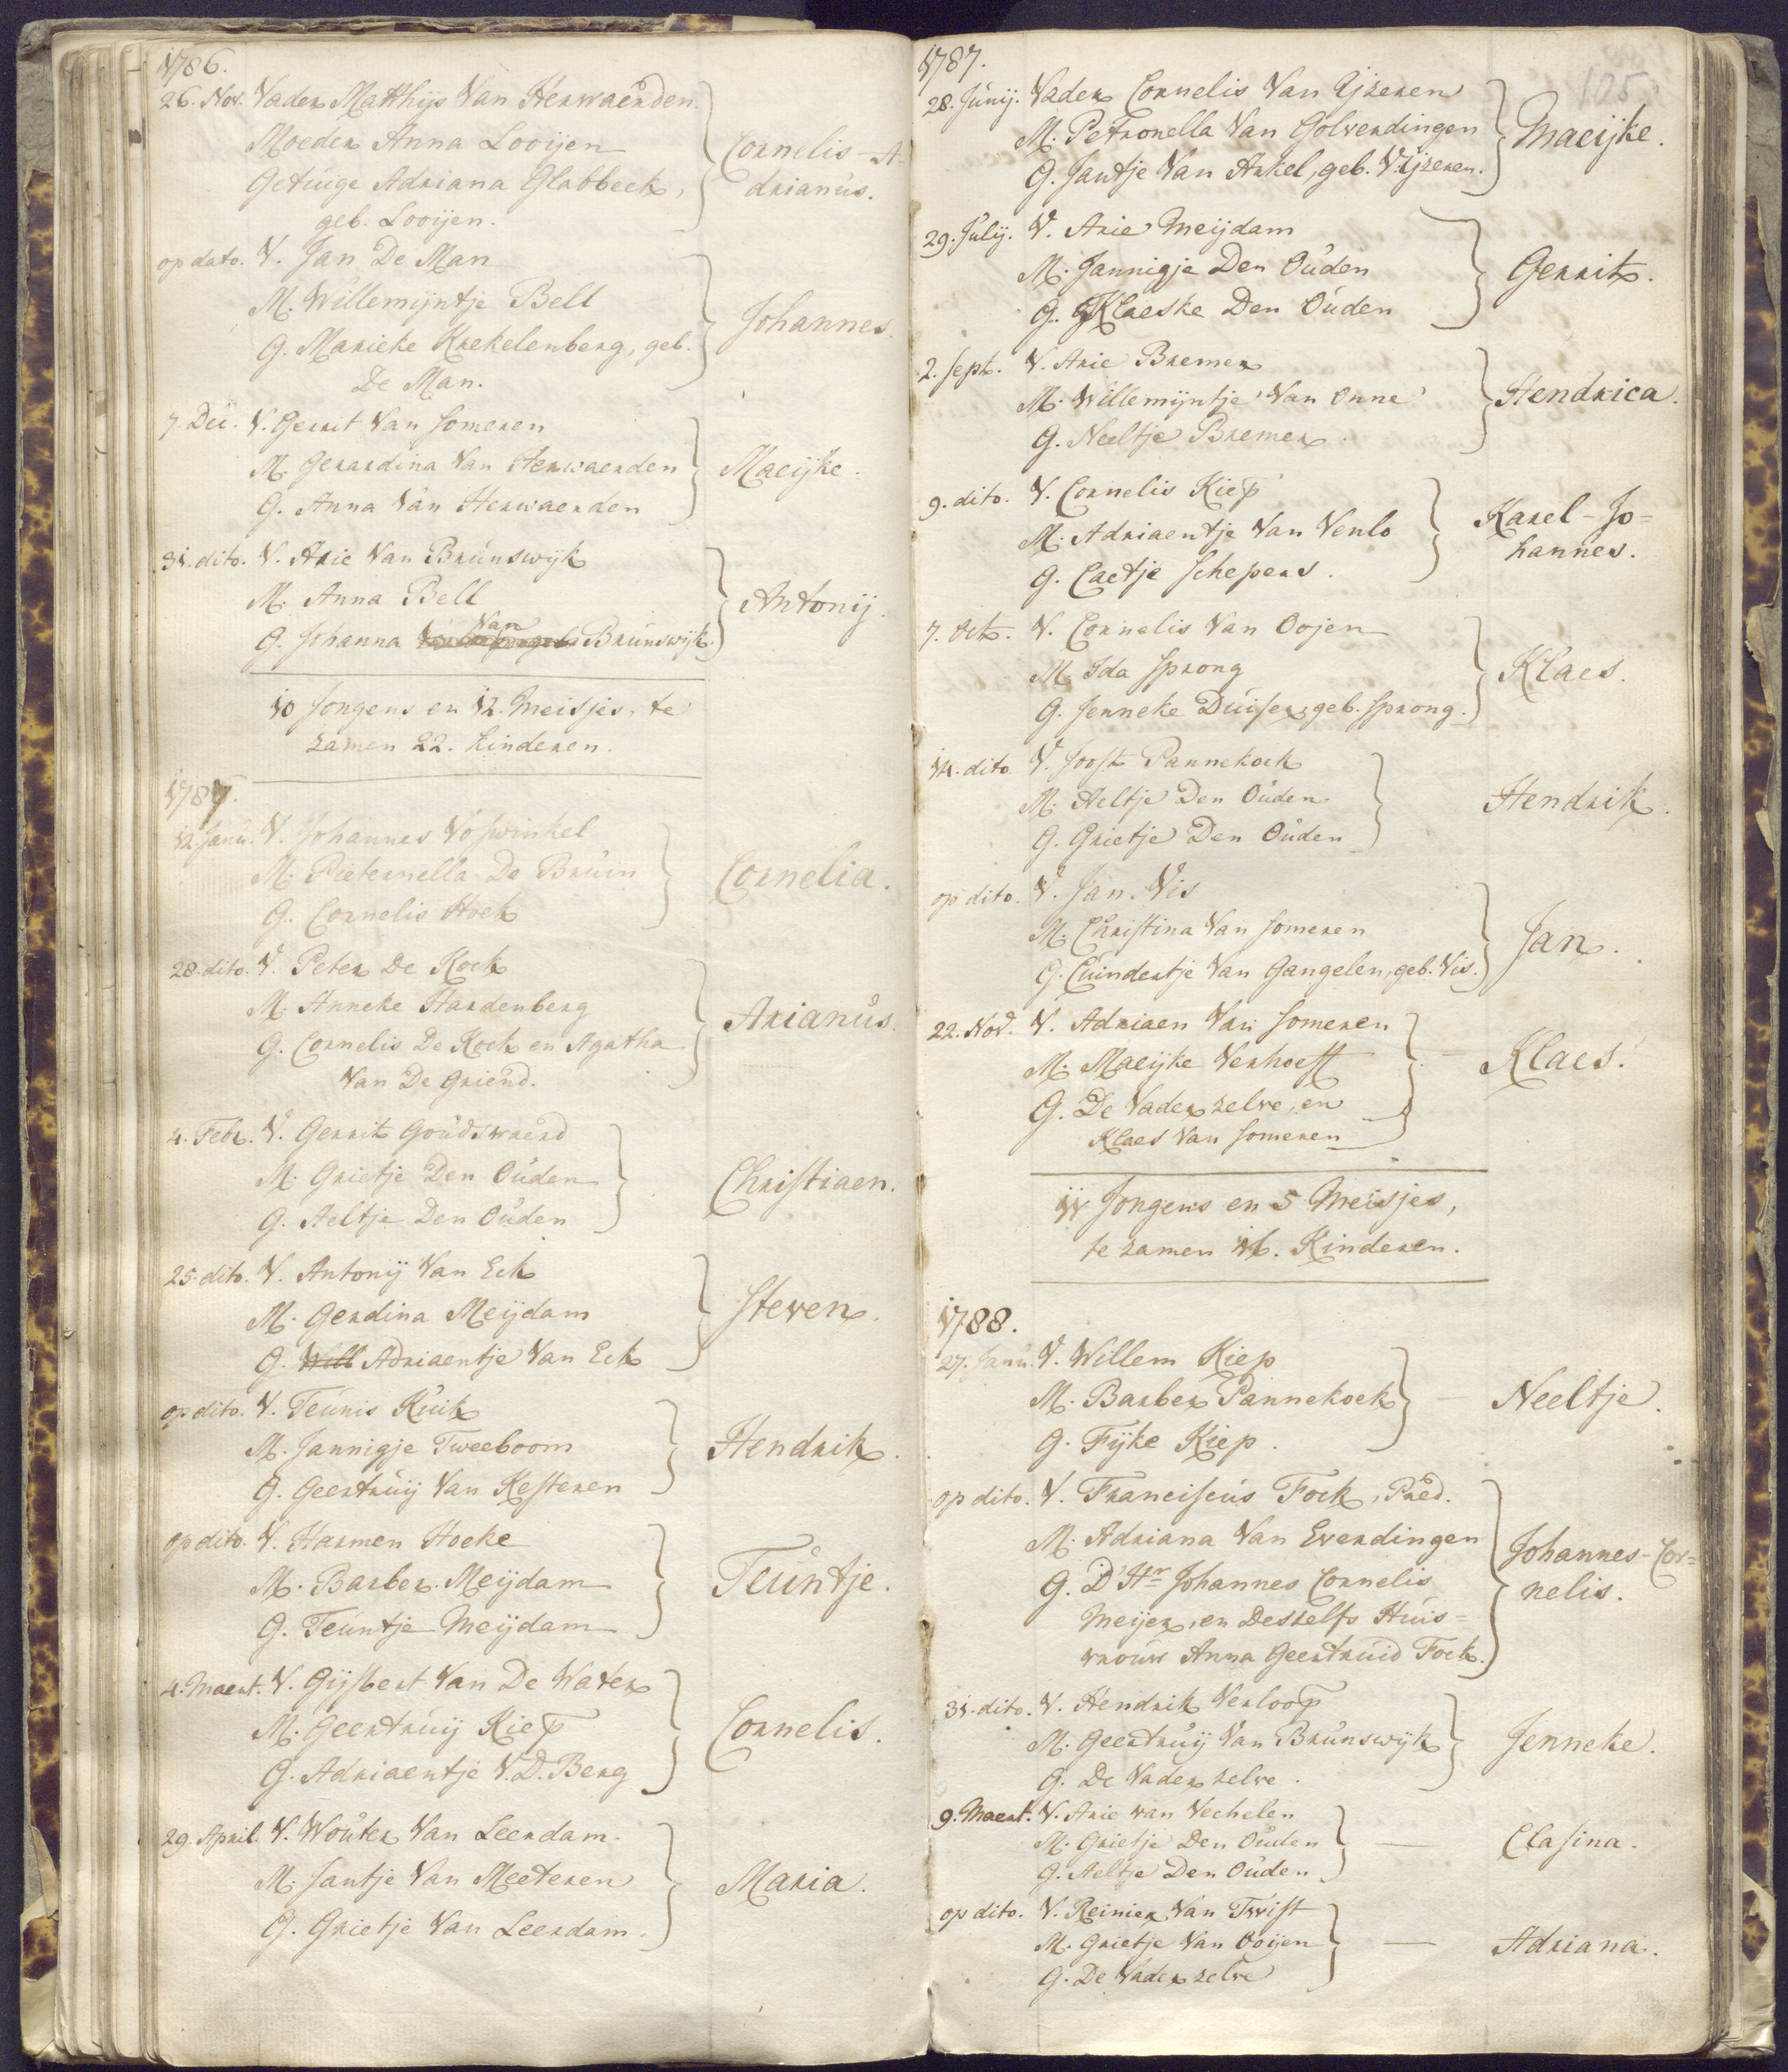 1786.
26. Nov. Vader Matthijs Van Herwaerden
Moeder Anna Looijen
Getuige Adriana Glabbeek,
geb. Looijen.
Cornelis-A=
drianus.
op dato. V. Jan De Man
M. Willemijntje Bell
G. Marieke Krekelenberg, geb.
De Man.
Johannes.
7. Dec. V. Gerrit Van Someren
M. Gerardina Van Herwaerden
G. Anna Van Herwaerden
Maeijke.
31. dito. V. Arie Van Brunswijk
M. Anna Bell
G. Johanna Van Brunswijk.
Antonij.
10 Jongens en 12. Meisjes, te
zamen 22. kinderen.
1787.
12. Janu. V. Johannes Voswinkel
M. Pieternella De Bruin
G. Cornelis Hoek
Cornelia.
28. dito. V. Peter De Kock
M. Anneke Hardenberg
G. Cornelis De Kock en Agatha
Van De Griend.
Arianus.
4. Febr. V. Gerrit Goudswaerd
M. Grietje Den Ouden
G. Aeltje Den Ouden
Christiaen.
25. dito. V. Antonij Van Eck
M. Gerdina Meijdam
G. Will Adriaentje Van Eck
Steven.
op dito. V. Teunis Kuik
M. Jannigje Tweeboom
G. Geertruij Van Kesteren
Hendrik.
op dito. V. Harmen Hoeke
M. Barber Meijdam
G. Teuntje Meijdam
Teuntje.
4. Maert. V. Gijsbert Van De Water
M. Geertruij Kiep
G. Adriaentje V. D. Berg
Cornelis.
29. April. V. Wouter Van Leerdam.
M. Jantje Van Meeteren
G. Grietje Van Leerdam.
Maria.
105
1787.
28. Junij. Vader Cornelis Van Ijzeren
M. Petronella Van Golverdingen
G. Jantje Van Arkel, geb. V. Ijzeren.
Maeijke.
29. Julij. V. Arie Meijdam
M. Jannigje Den Ouden
G. Klaeske Den Ouden
Gerrit.
2. Sept. V. Arie Bremer
M. Willemijntje Van Onne
G. Neeltje Bremer.
Hendrica.
9. dito. V. Cornelis Kiep
M. Adriaentje Van Venlo
G. Caetje Schepers.
Karel-Jo=
hannes.
7. Oct. V. Cornelis Van Oojen
M. Ida Sprong
G. Jenneke Duiser, geb. Sprong.
Klaes.
14. dito. V. Joost Pannekoek
M. Aeltje Den Ouden
G. Grietje Den Ouden
Hendrik.
op dito. V. Jan Vis
M. Christina Van Someren
G. Cuindertje Van Gangelen, geb. Vis.
Jan.
22. Nov. V. Adriaen Van Someren
M. Maeijke Verhoeff
G. De Vader zelve, en
Klaes Van Someren
Klaes.
11 Jongens en 5 Meisjes,
te zamen 16. Kinderen.
1788.
27. Janu. V. Willem Kiep
M. Barber Pannekoek
G. Fijke Kiep.
Neeltje.
op dito. V. Franciscus Fock, Pred.
M. Adriana Van Everdingen
G. D'Hr Johannes Cornelis
Meijer, en Deszelfs Huis=
vrouw Anna Geertruid Fock.
Johannes-Cor=
nelis.
31. dito. V. Hendrik Verloop
M. Geertruij Van Brunswijk
G. De Vader zelve.
Jenneke.
9. Maert. V. Arie van Vechelen
M. Grietje Den Ouden
G. Aeltje Den Ouden
Clasina.
op dito. V. Reinier Van Twist
M. Grietje Van Ooijen
G. De Vader zelve
Adriana.